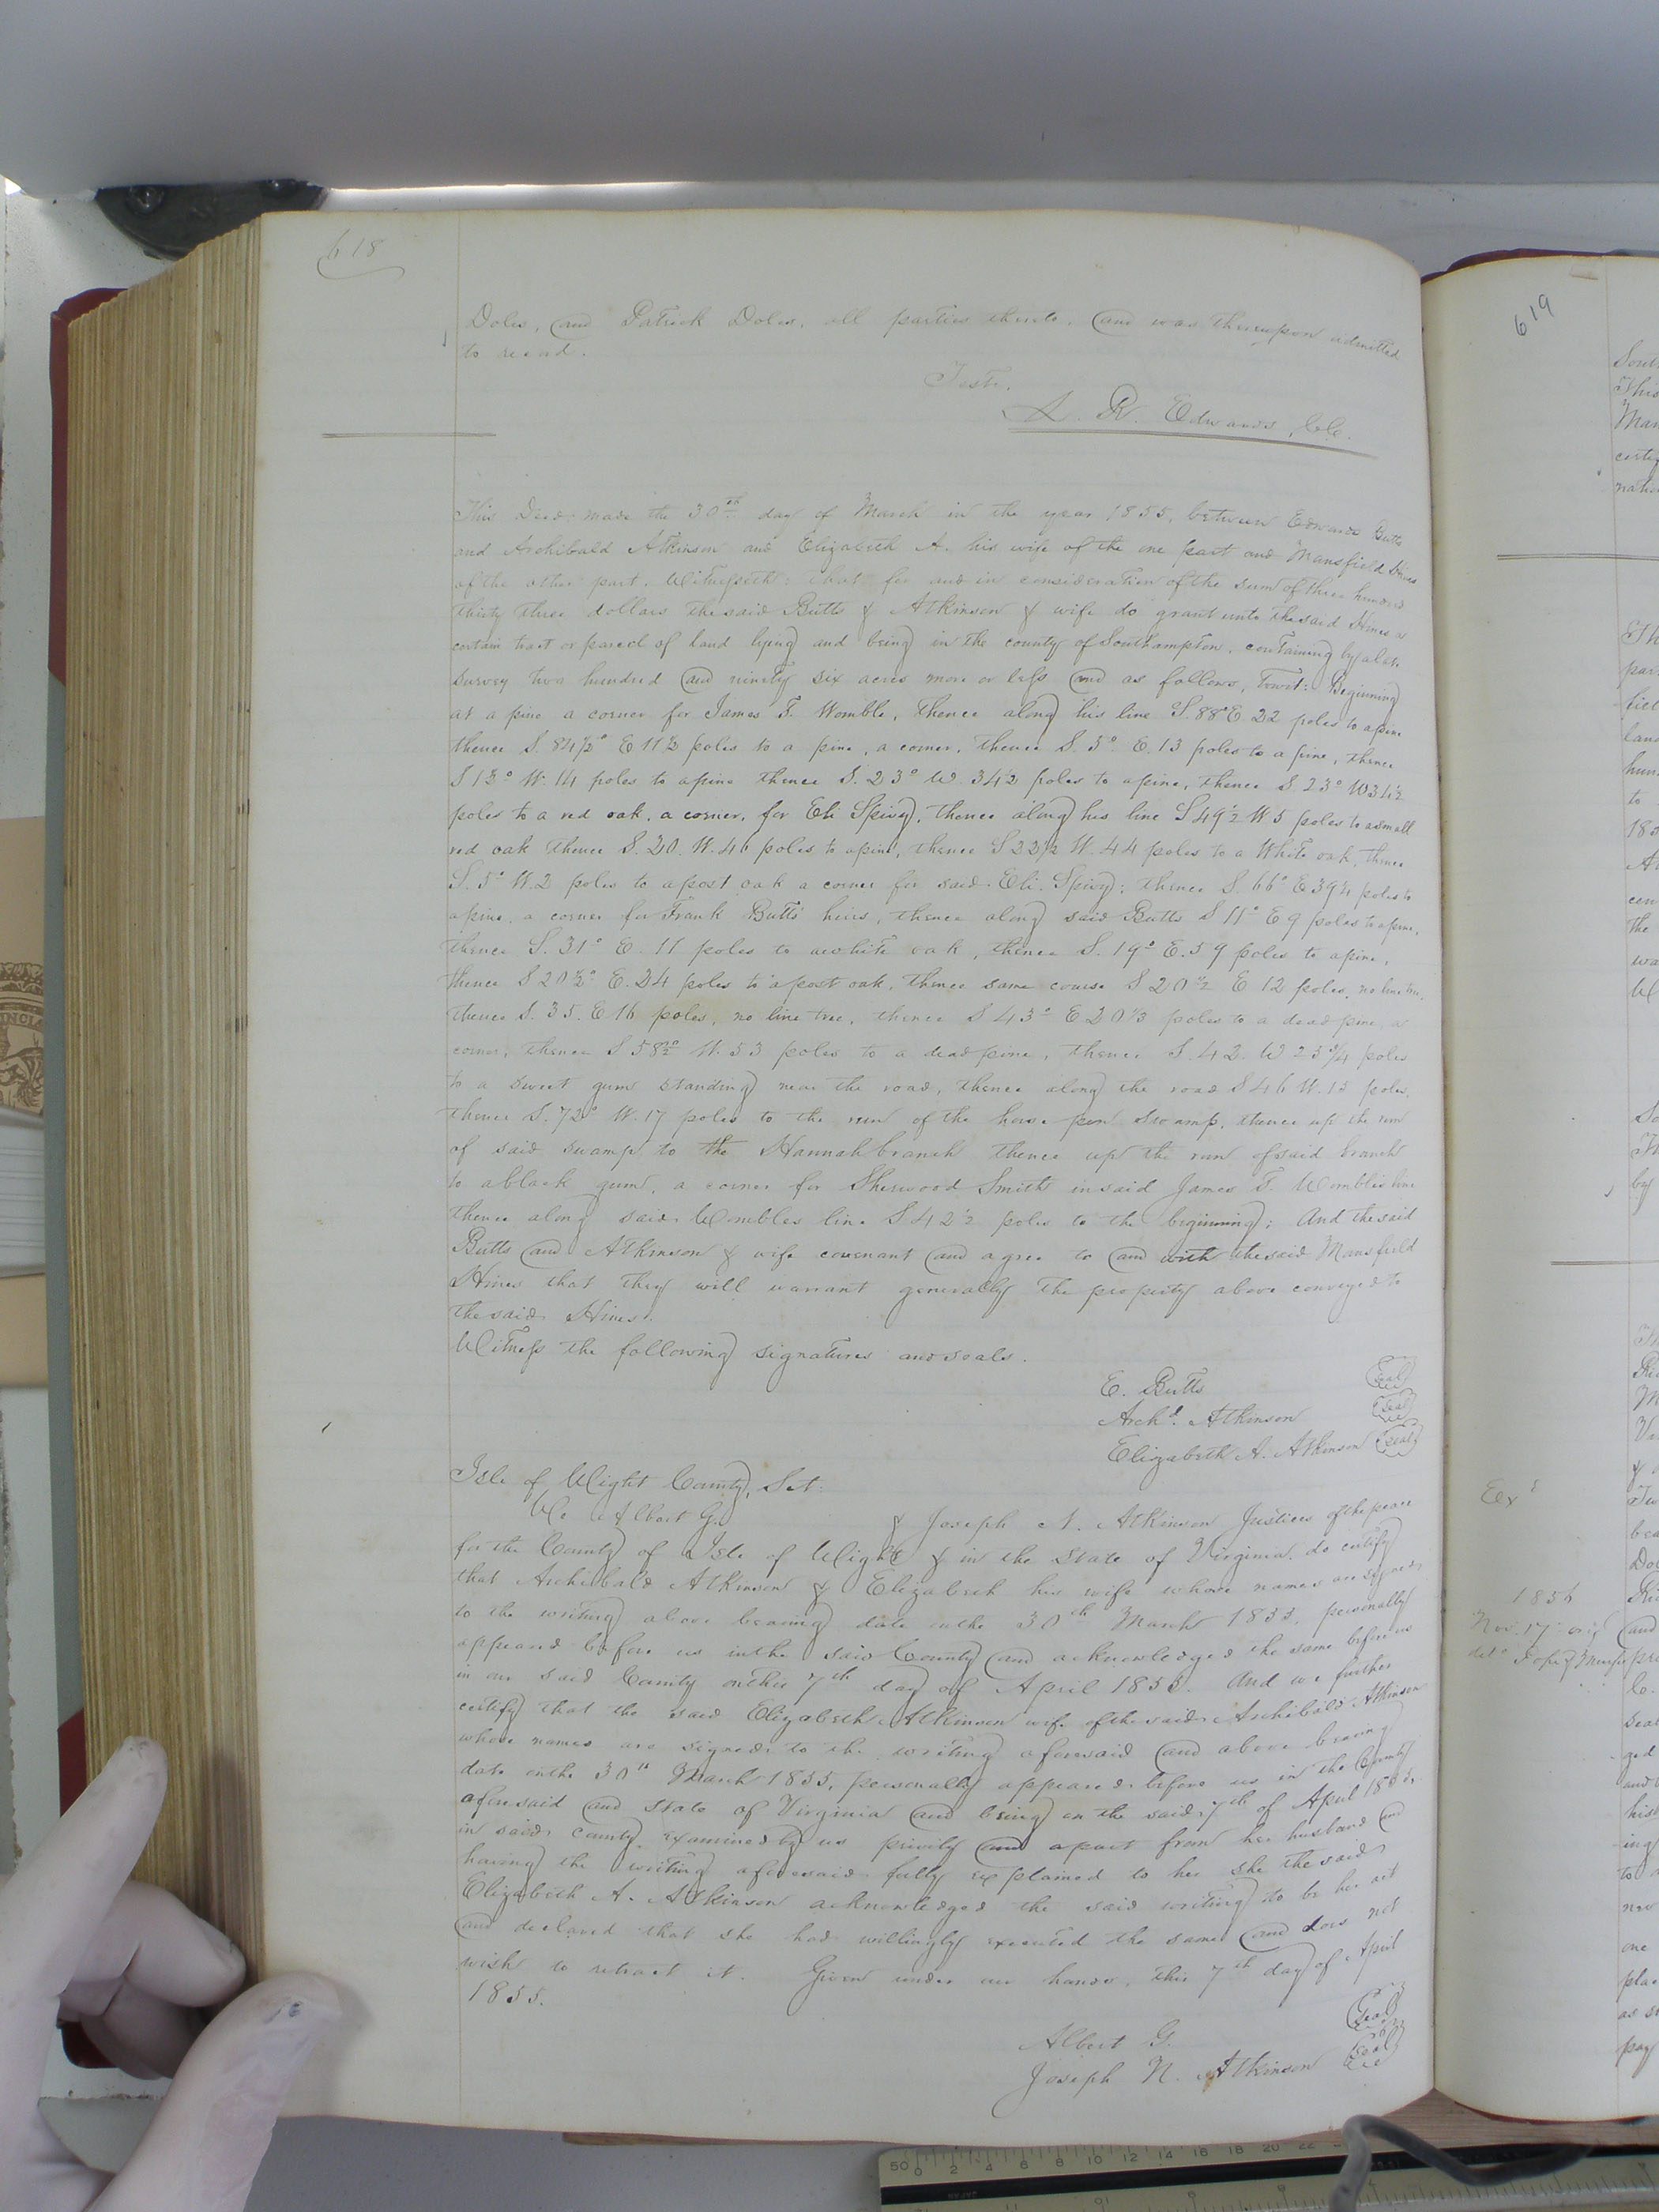 618
Doles, and Patrick Doles, all parties thereto, and was thereupon admitted
to record.
Teste,
L. R. Edwards, C.C.
This Deed made the 30th day of March in the year 1855, between Edwards Butts
and Archibald Atkinson and Elizabeth A. his wife of the one part and Mansfield Hines
of the other part. Witnesseth: that for and in consideration of the sum of three hundred
thirty three dollars the said Butts & Atkinson & wife do grant unto the said Hines a
certain tract or parcel of land lying and being in the county of Southampton, containing by a late
survey two hundred and ninety six acres more or less and as follows, Towit: Beginning
at a pine a corner for James T. Womble, thence along his line S. 88° E 22 poles to a pine
thence S. 84½° E 11½ poles to a pine, a corner, thence S. 5° E. 13 poles to a pine, thence
S 13° W. 14 poles to a pine thence S. 23° W. 34½ poles to a pine, thence S 23° W 34½
poles to a red oak, a corner, for Eli Spivy, thence along his line S 49½ W 5 poles to a small
red oak thence S. 20. W. 46 poles to a pine, thence S 22½ W. 44 poles to a White oak, thence
S. 5° W. 2 poles to a post oak a corner for said Eli. Spivy; thence S. 66° E 39¼ poles to
a pine, a corner for Frank Butts' heirs, thence along said Butts S 11° E 9 poles to a pine,
thence S. 31° E. 11 poles to a white oak, thence S. 19° E. 59 poles to a pine,
thence S 20½° E. 24 poles to a post oak, thence same course S 20½ E 12 poles, no line tree,
thence S. 35. E 16 poles, no line tree, thence S 43° E 20 1/3 poles to a dead pine, a
corner, thence S 58½° W. 53 poles to a dead pine, thence S. 42. W 25¾ poles
to a sweet gum standing near the road, thence along the road S 46 W. 15 poles,
thence S. 72° W. 17 poles to the run of the horse pen swamp, thence up the run
of said swamp to the Hannah branch thence up the run of said branch
to a black gum, a corner for Sherwood Smith in said James T. Womble's line
thence along said Wombles line S 42½ poles to the beginning; And the said
Butts and Atkinson & wife covenant and agree to and with the said Mansfield
Hines that they will warrant generally the property above conveyed to
the said Hines.
Witness the following signatures and seals.
E. Butts Seal
Archd. Atkinson Seal
Elizabeth A. Atkinson Seal
Isle of Wight County, Sct:
We Albert G. & Joseph N. Atkinson Justices of the peace
for the County of Isle of Wight & in the State of Virginia, do certify
that Archibald Atkinson & Elizabeth his wife whose names are signed
to the writing above bearing date on the 30th March 1855, personally
appeared before us in the said County and acknowledged the same before us
in our said County on this 7th day of April 1855. And we further
certify that the said Elizabeth Atkinson wife of the said Archibald Atkinson
whose names are signed to the writing aforesaid and above bearing
date on the 30th March 1855, personally appeared before us in the County
aforesaid and State of Virginia and being on the said 7th of April 1855,
in said county examined by us privily and apart from her husband and
having the writing aforesaid fully explained to her she the said
Elizabeth A. Atkinson acknowledged the said writing to be her act
and declared that she had willingly executed the same and does not
wish to retract it. Given under our hands, this 7th day of April
1855.
Albert G. Seal
Joseph N. Atkinson Seal
619
Exd
1856
Nov. 17